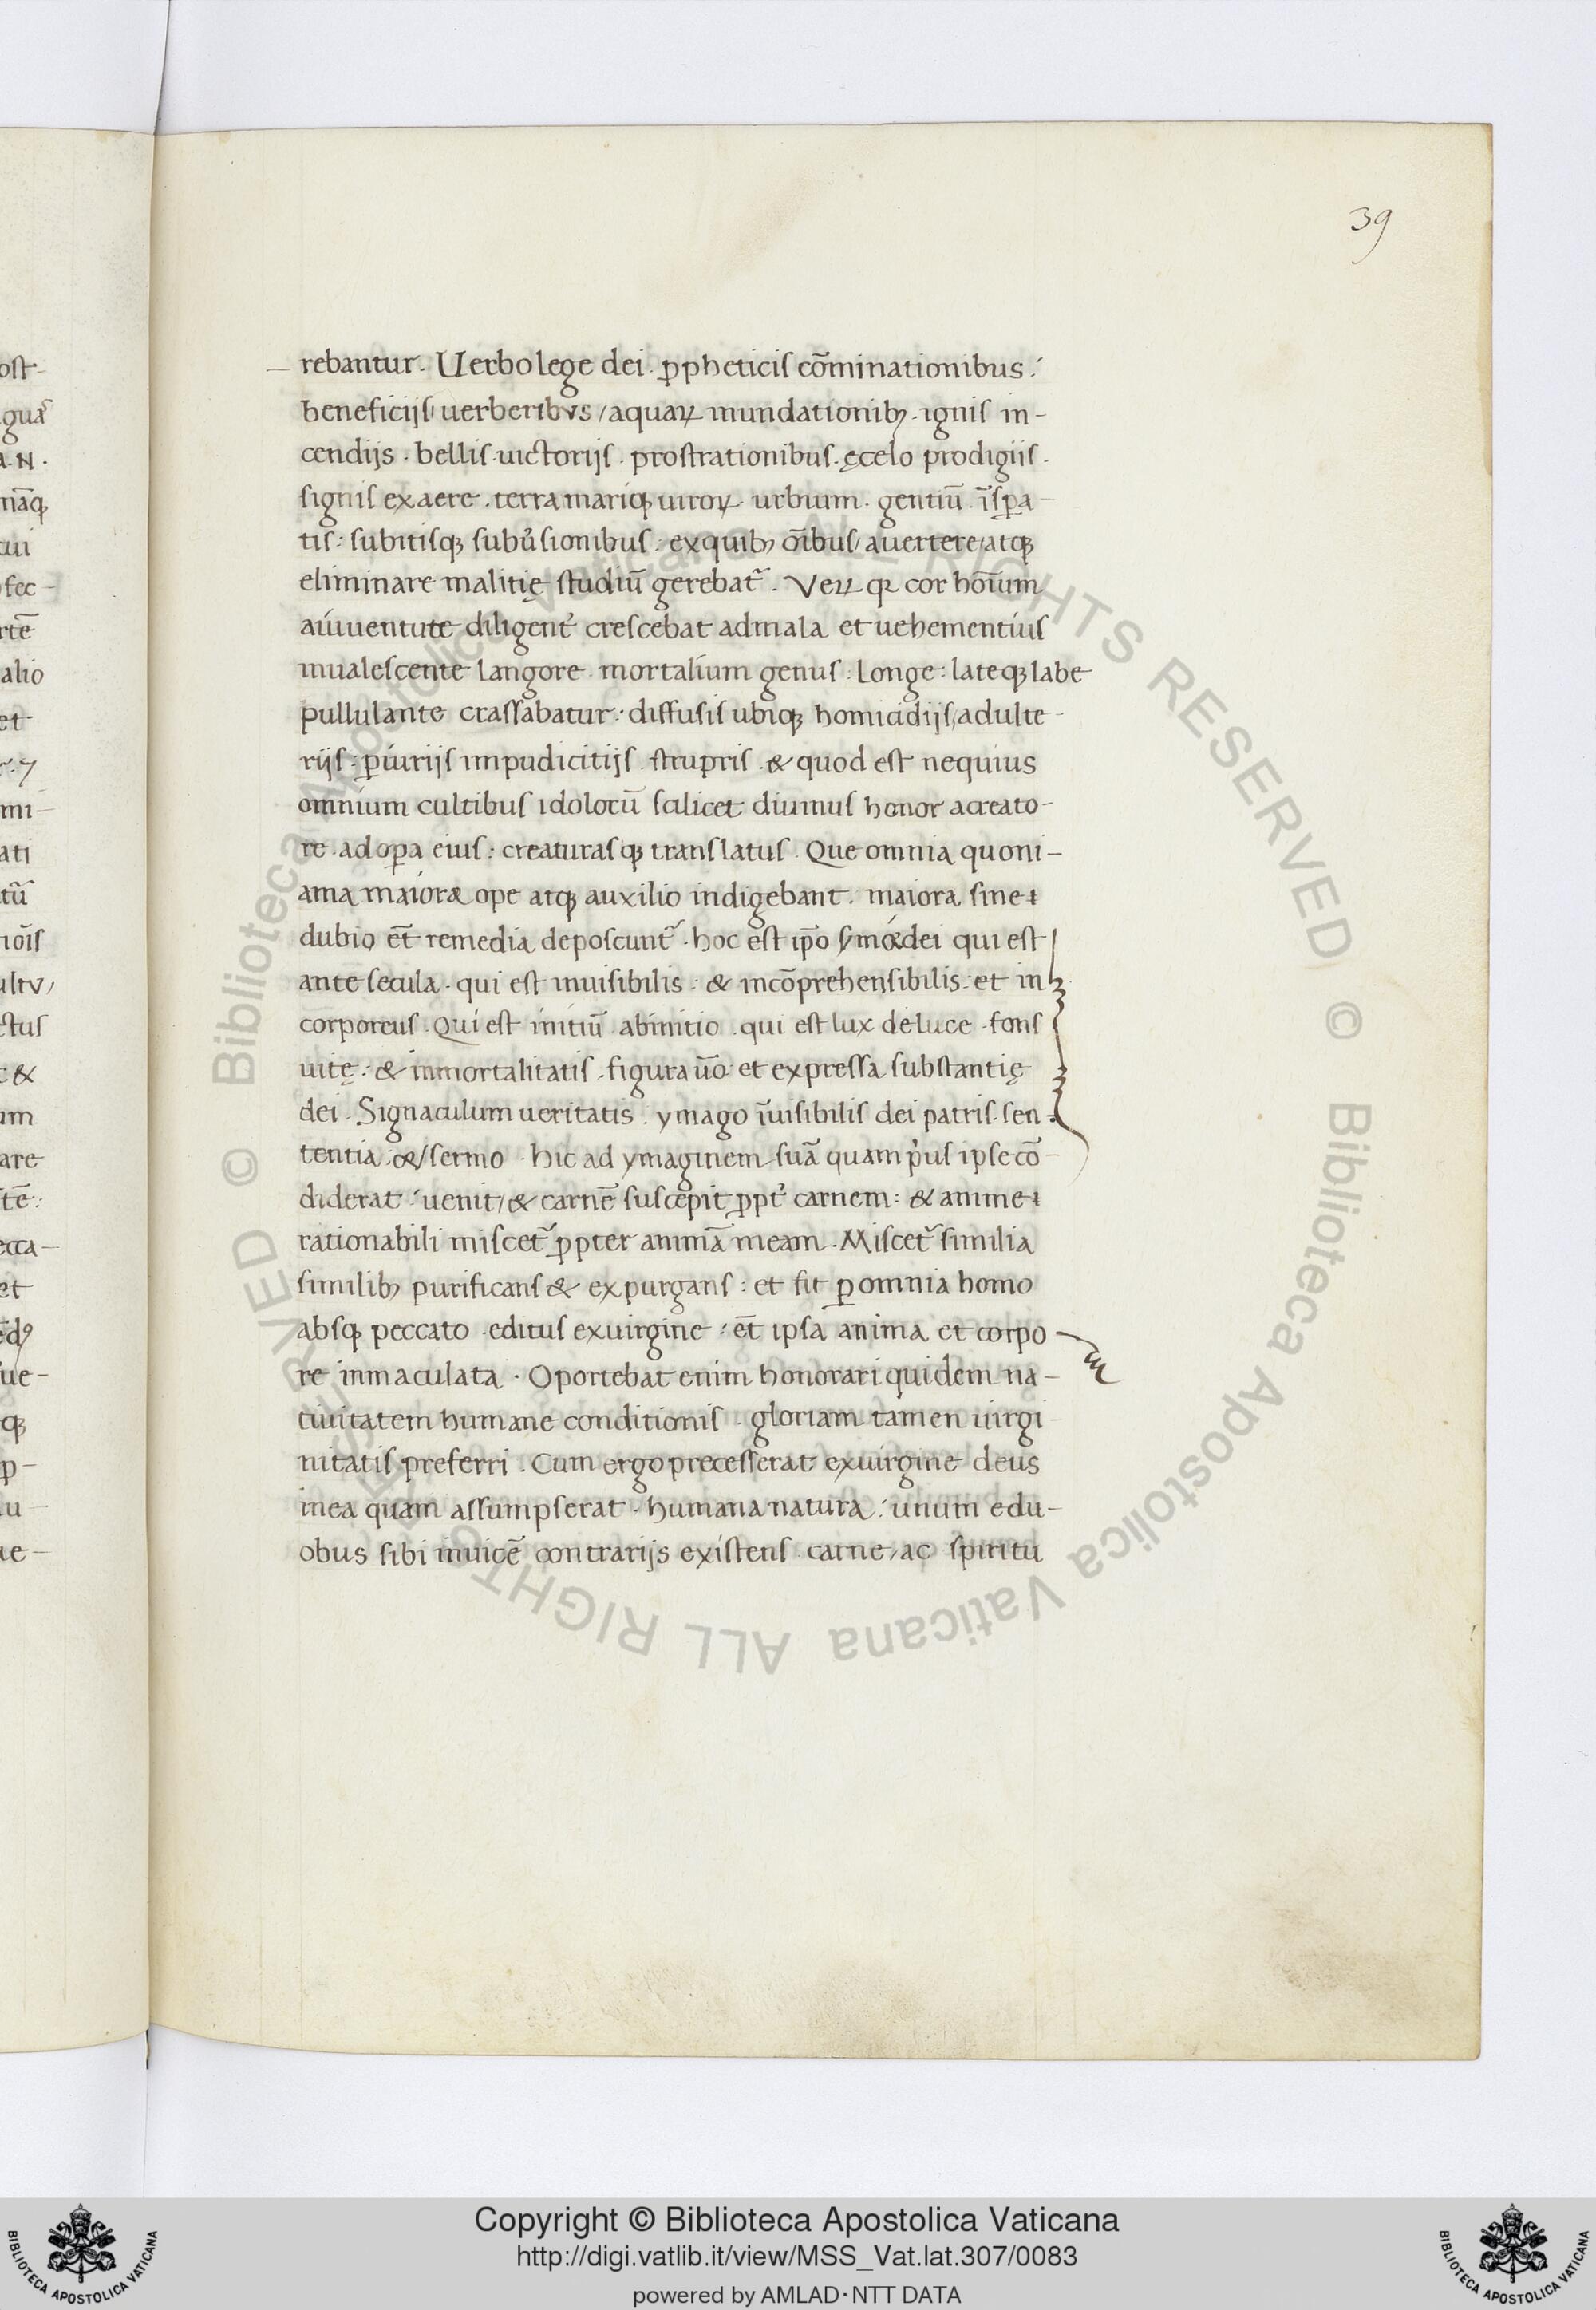 39
rebantur. Uerbo lege dei. ꝓpheticis cōminationibus :
beneficijs / uerberibus / aquaꝝ mundationibꝫ. ignis in-
cendijs. bellis. uictorijs. prostrationibus. ęcelo prodigiis.
signis exaere. terra mariqꝫ uiroꝝ urbium. gentiū. īsꝑa
tis : subitisqꝫ subu̓sionibus : exquibꝫ oībus / auertere / atqꝫ
eliminare malitię studiū gerebat᷑. Veꝝ qꝛ cor hoīum
aiuuentute diligent᷑ crescebat admala et uehementius
inualescente langore mortalium genus : longe : lateqꝫ labe
pullulante crassabatur : diffusis ubiqꝫ homicidijs / adulte-
rijs : ꝑiurijs impudicitijs. strupris. & quod est nequius
omnium cultibus idolorū scilicet diuinus honor acreato-
re. adoꝑa eius : creaturasqꝫ translatus. Que omnia quoni-
ama maiora ope atqꝫ auxilio indigebant. maiora sine
dubio et̄ remedia deposcunt᷑. hoc est ip̄o dei qui est
ante secula. qui est inuisibilis : & incōprehensibilis : et in
corporeus. Qui est initiū abinitio. qui est lux deluce. fons
uitę : & inmortalitatis. figura uo᷑ : et expressa substantię
dei. Signaculum ueritatis. ymago īuisibilis dei patris. sen
tentia : & / sermo. hic ad ymaginem suā quam pͥus ipse cō-
diderat : uenit / & carnē suscepit ꝓpt᷑ carnem : & anime
rationabili miscet᷑ ꝓpter animā meam. Miscet᷑ similia
similibꝫ purificans & expurgans : et fit ꝑ omnia homo
absqꝫ peccato. editus exuirgine : et̄ ipsa anima et corpo
re inmaculata. Oportebat enim honorari quidem na-
tiuitatem humane conditionis. gloriam tamen uirgi
nitatis preferri. Cum ergo precesserat exuirgine deus
inea quam assumpserat. humana natura : unum edu-
obus sibi inuicē contrarijs existens carne / ac spiritu
Copyright © Biblioteca Apostolica Vaticana
http://digi.vatlib.it/view/MSS_Vat.lat.307/0083
powered by AMLAD·NTT DATA
BIBLIOTECA APOSTOLICA VATICANA
BIBLIOTECA APOSTOLICA VATICANA
© Biblioteca Apostolica Vaticana ALL RIGHTS RESERVED © Biblioteca Apostolica Vaticana ALL RIGHTS RESERVED